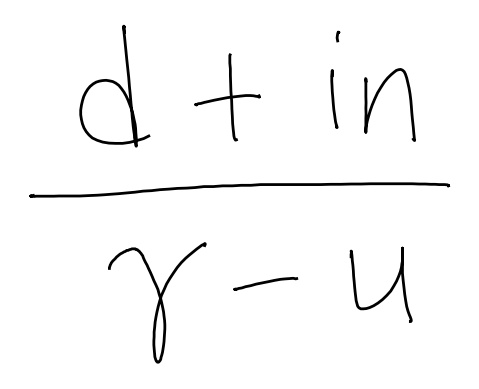 d + in
γ - u